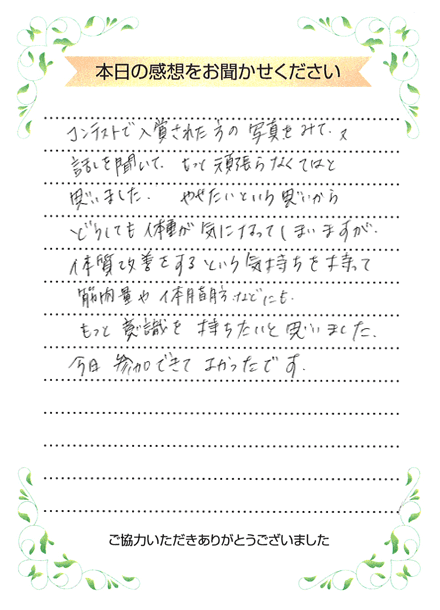 本日の感想をお聞かせください
コンテストで入賞された方の写真をみて、又
話しを聞いて、もっと頑張らなくてはと
思いました。 やせたいという思いから
どうしても体重が気になってしまいますが、
体質改善をするという気持ちを持って
筋肉量や体脂肪などにも、
もっと意識を持ちたいと思いました。
今日参加できてよかったです。
ご協力いただきありがとうございました